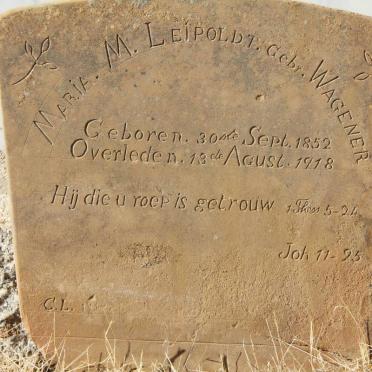 MARIA. M. LEIPOLDT. Gebr. WAGENER
Geboren. 30ste Sept. 1852
Overleden. 13de August. 1918
Hij die u roep is getrouw 1 Thess 5-24
Joh 11-25
C.L.